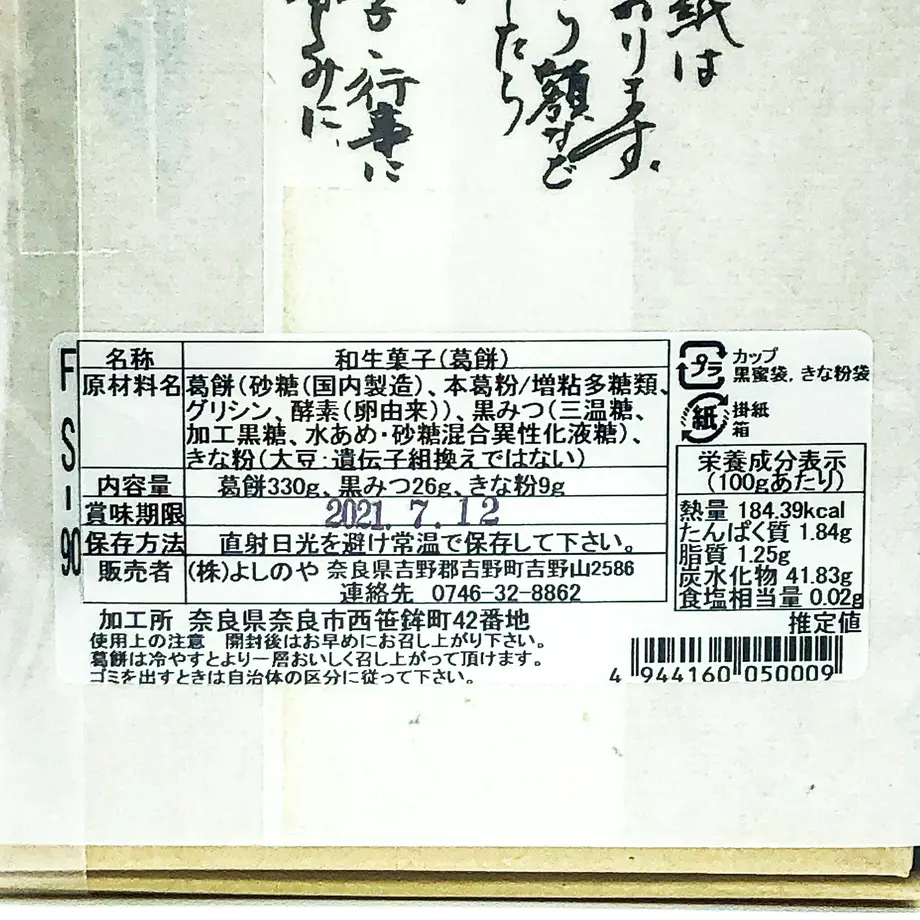 紙は
おります。
り額など
したら
行事に
みに
FS-90
名称 和生菓子(葛餅)
原材料名 葛餅(砂糖(国内製造)、本葛粉/増粘多糖類、
グリシン、酵素(卵由来))、黒みつ(三温糖、
加工黒糖、水あめ・砂糖混合異性化液糖)、
きな粉(大豆:遺伝子組換えではない)
内容量 葛餅330g、黒みつ26g、きな粉9g
賞味期限 2021.7.12
保存方法 直射日光を避け常温で保存して下さい。
販売者 (株)よしのや 奈良県吉野郡吉野町吉野山2586
連絡先 0746-32-8862
加工所 奈良県奈良市西笹鉾町42番地
使用上の注意 開封後はお早めにお召し上がり下さい。
葛餅は冷やすとより一層おいしく召し上がって頂けます。
ゴミを出すときは自治体の区分に従って下さい。
プラ カップ
黒蜜袋, きな粉袋
紙 掛紙
箱
栄養成分表示
(100gあたり)
熱量 184.39kcal
たんぱく質 1.84g
脂質 1.25g
炭水化物 41.83g
食塩相当量 0.02g
推定値
4 944160 050009